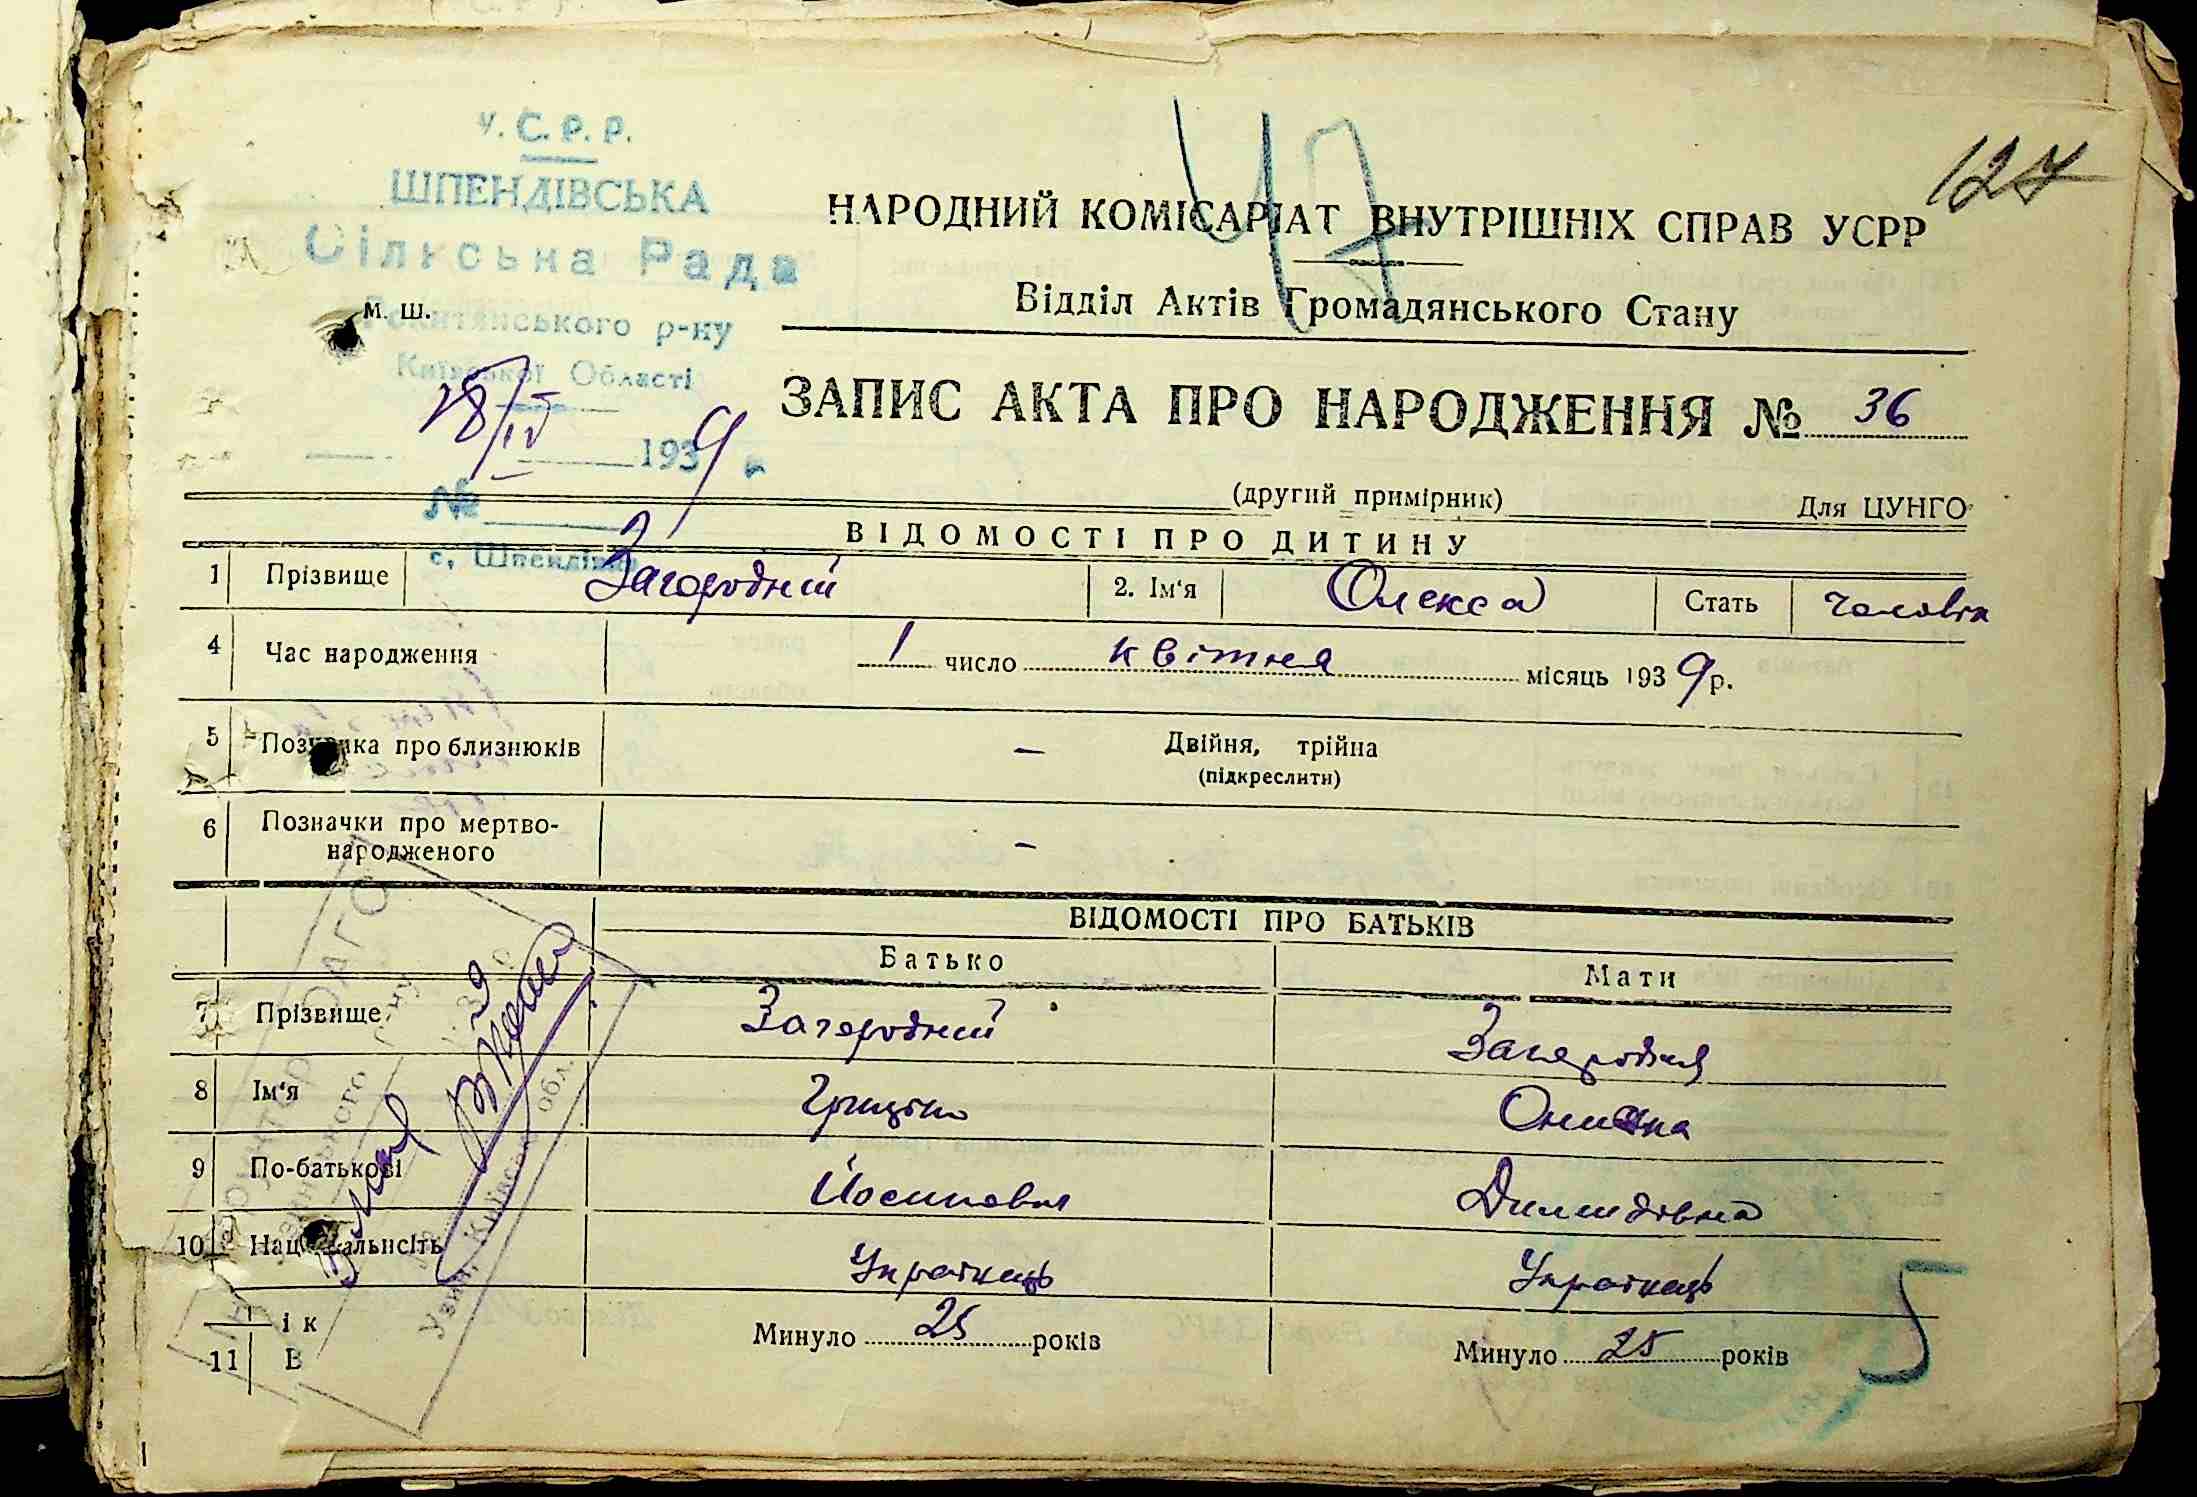 У. С. Р. Р.
ШПЕНДІВСЬКА
Сілкська Рада
Рокитянського р-ну
Київської Області
28/IV 1939 г.
№
с. Шпендівка
м. ш.
47
127
НАРОДНИЙ КОМІСАРІАТ ВНУТРІШНІХ СПРАВ УСРР
Відділ Актів Громадянського Стану
ЗАПИС АКТА ПРО НАРОДЖЕННЯ № 36
(другий примірник) Для ЦУНГО
ВІДОМОСТІ ПРО ДИТИНУ
1 Прізвище Загородній 2. Ім'я Олекса Стать чоловіч
4 Час народження 1 число квітня місяць 1939 р.
5 Позначка про близнюків — Двійня, трійна
(підкреслити)
6 Позначки про мертво-
народженого —
ВІДОМОСТІ ПРО БАТЬКІВ
Батько Мати
7 Прізвище Загородний Загородня
8 Ім'я Грицько
9 По-батькові Йосипович Демидівна
10 Національність Українець Українець
11 Вік Минуло 25 років Минуло 25 років
5
Узин, Київськ. обл.